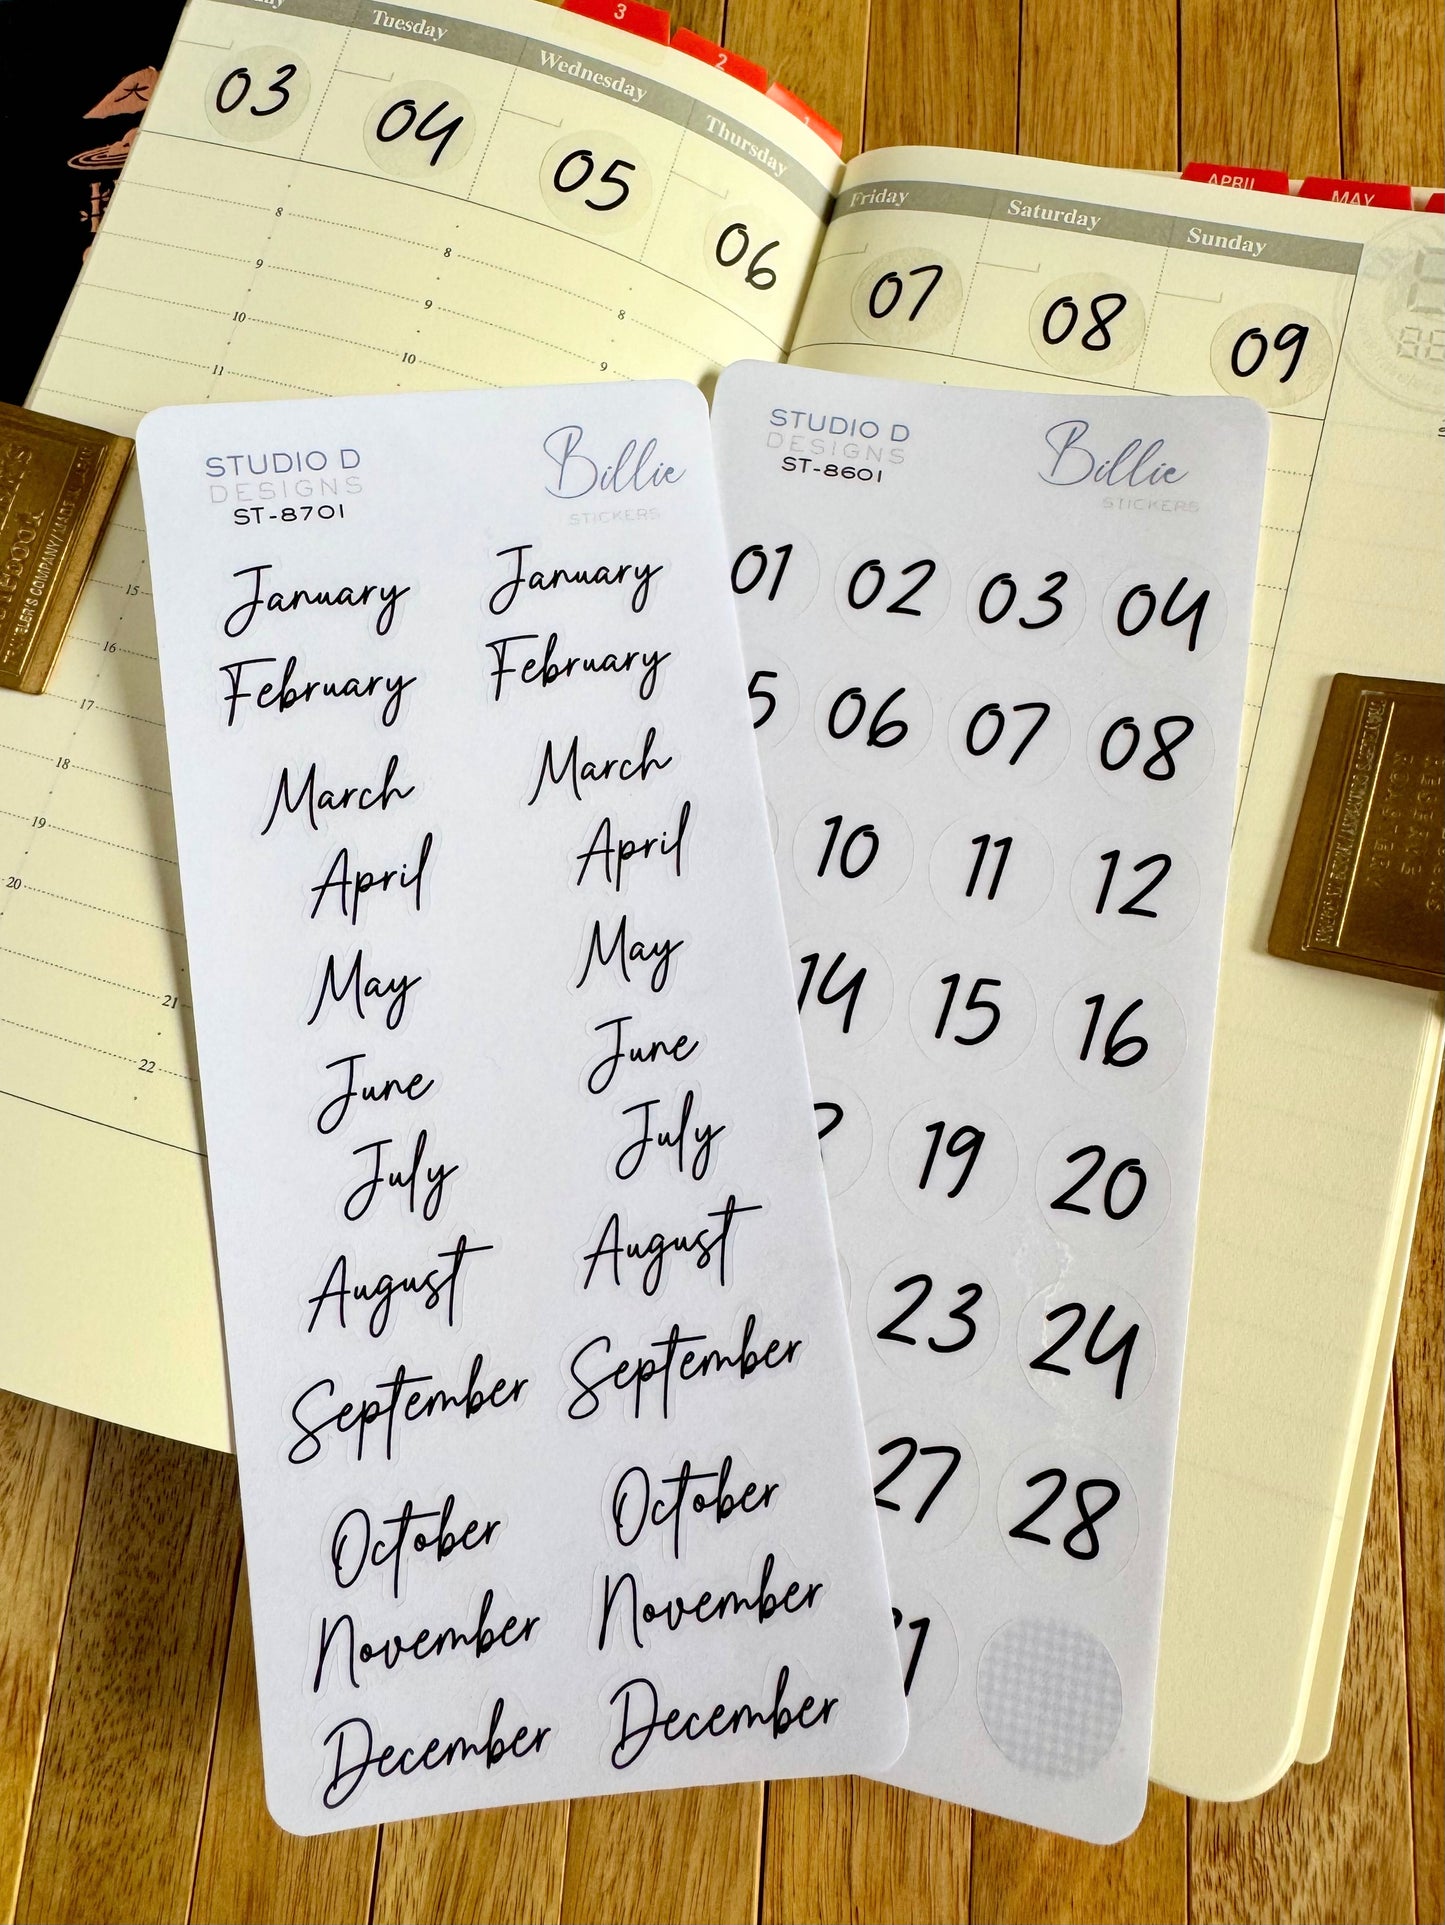 3
2
1
Tuesday
Wednesday
Thursday
03
04
05
06
8
8
8
9
9
9
10
10
11
15
16
17
18
19
20
21
22
APRIL
MAY
Friday
Saturday
Sunday
07
08
09
大
TRAVELER'S COMPANY/MADE IN JAPAN
STUDIO D
DESIGNS
ST-8701
Billie
STICKERS
January January
February February
March March
April April
May May
June June
July July
August August
September September
October October
November November
December December
STUDIO D
DESIGNS
ST-8601
Billie
STICKERS
01 02 03 04
5 06 07 08
10 11 12
14 15 16
19 20
23 24
27 28